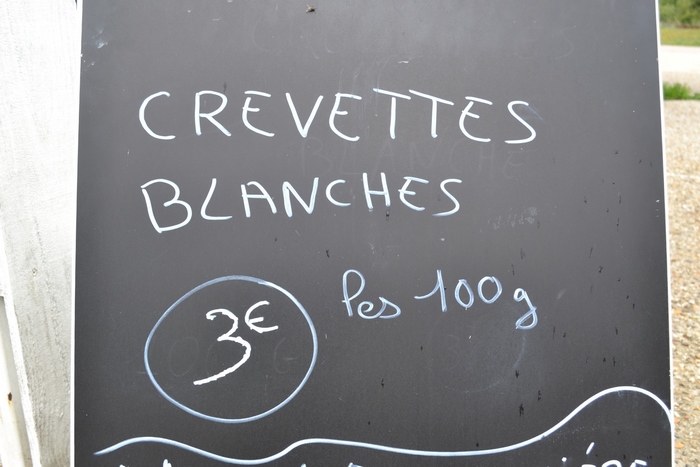 CREVETTES
BLANCHES
3€ les 100g